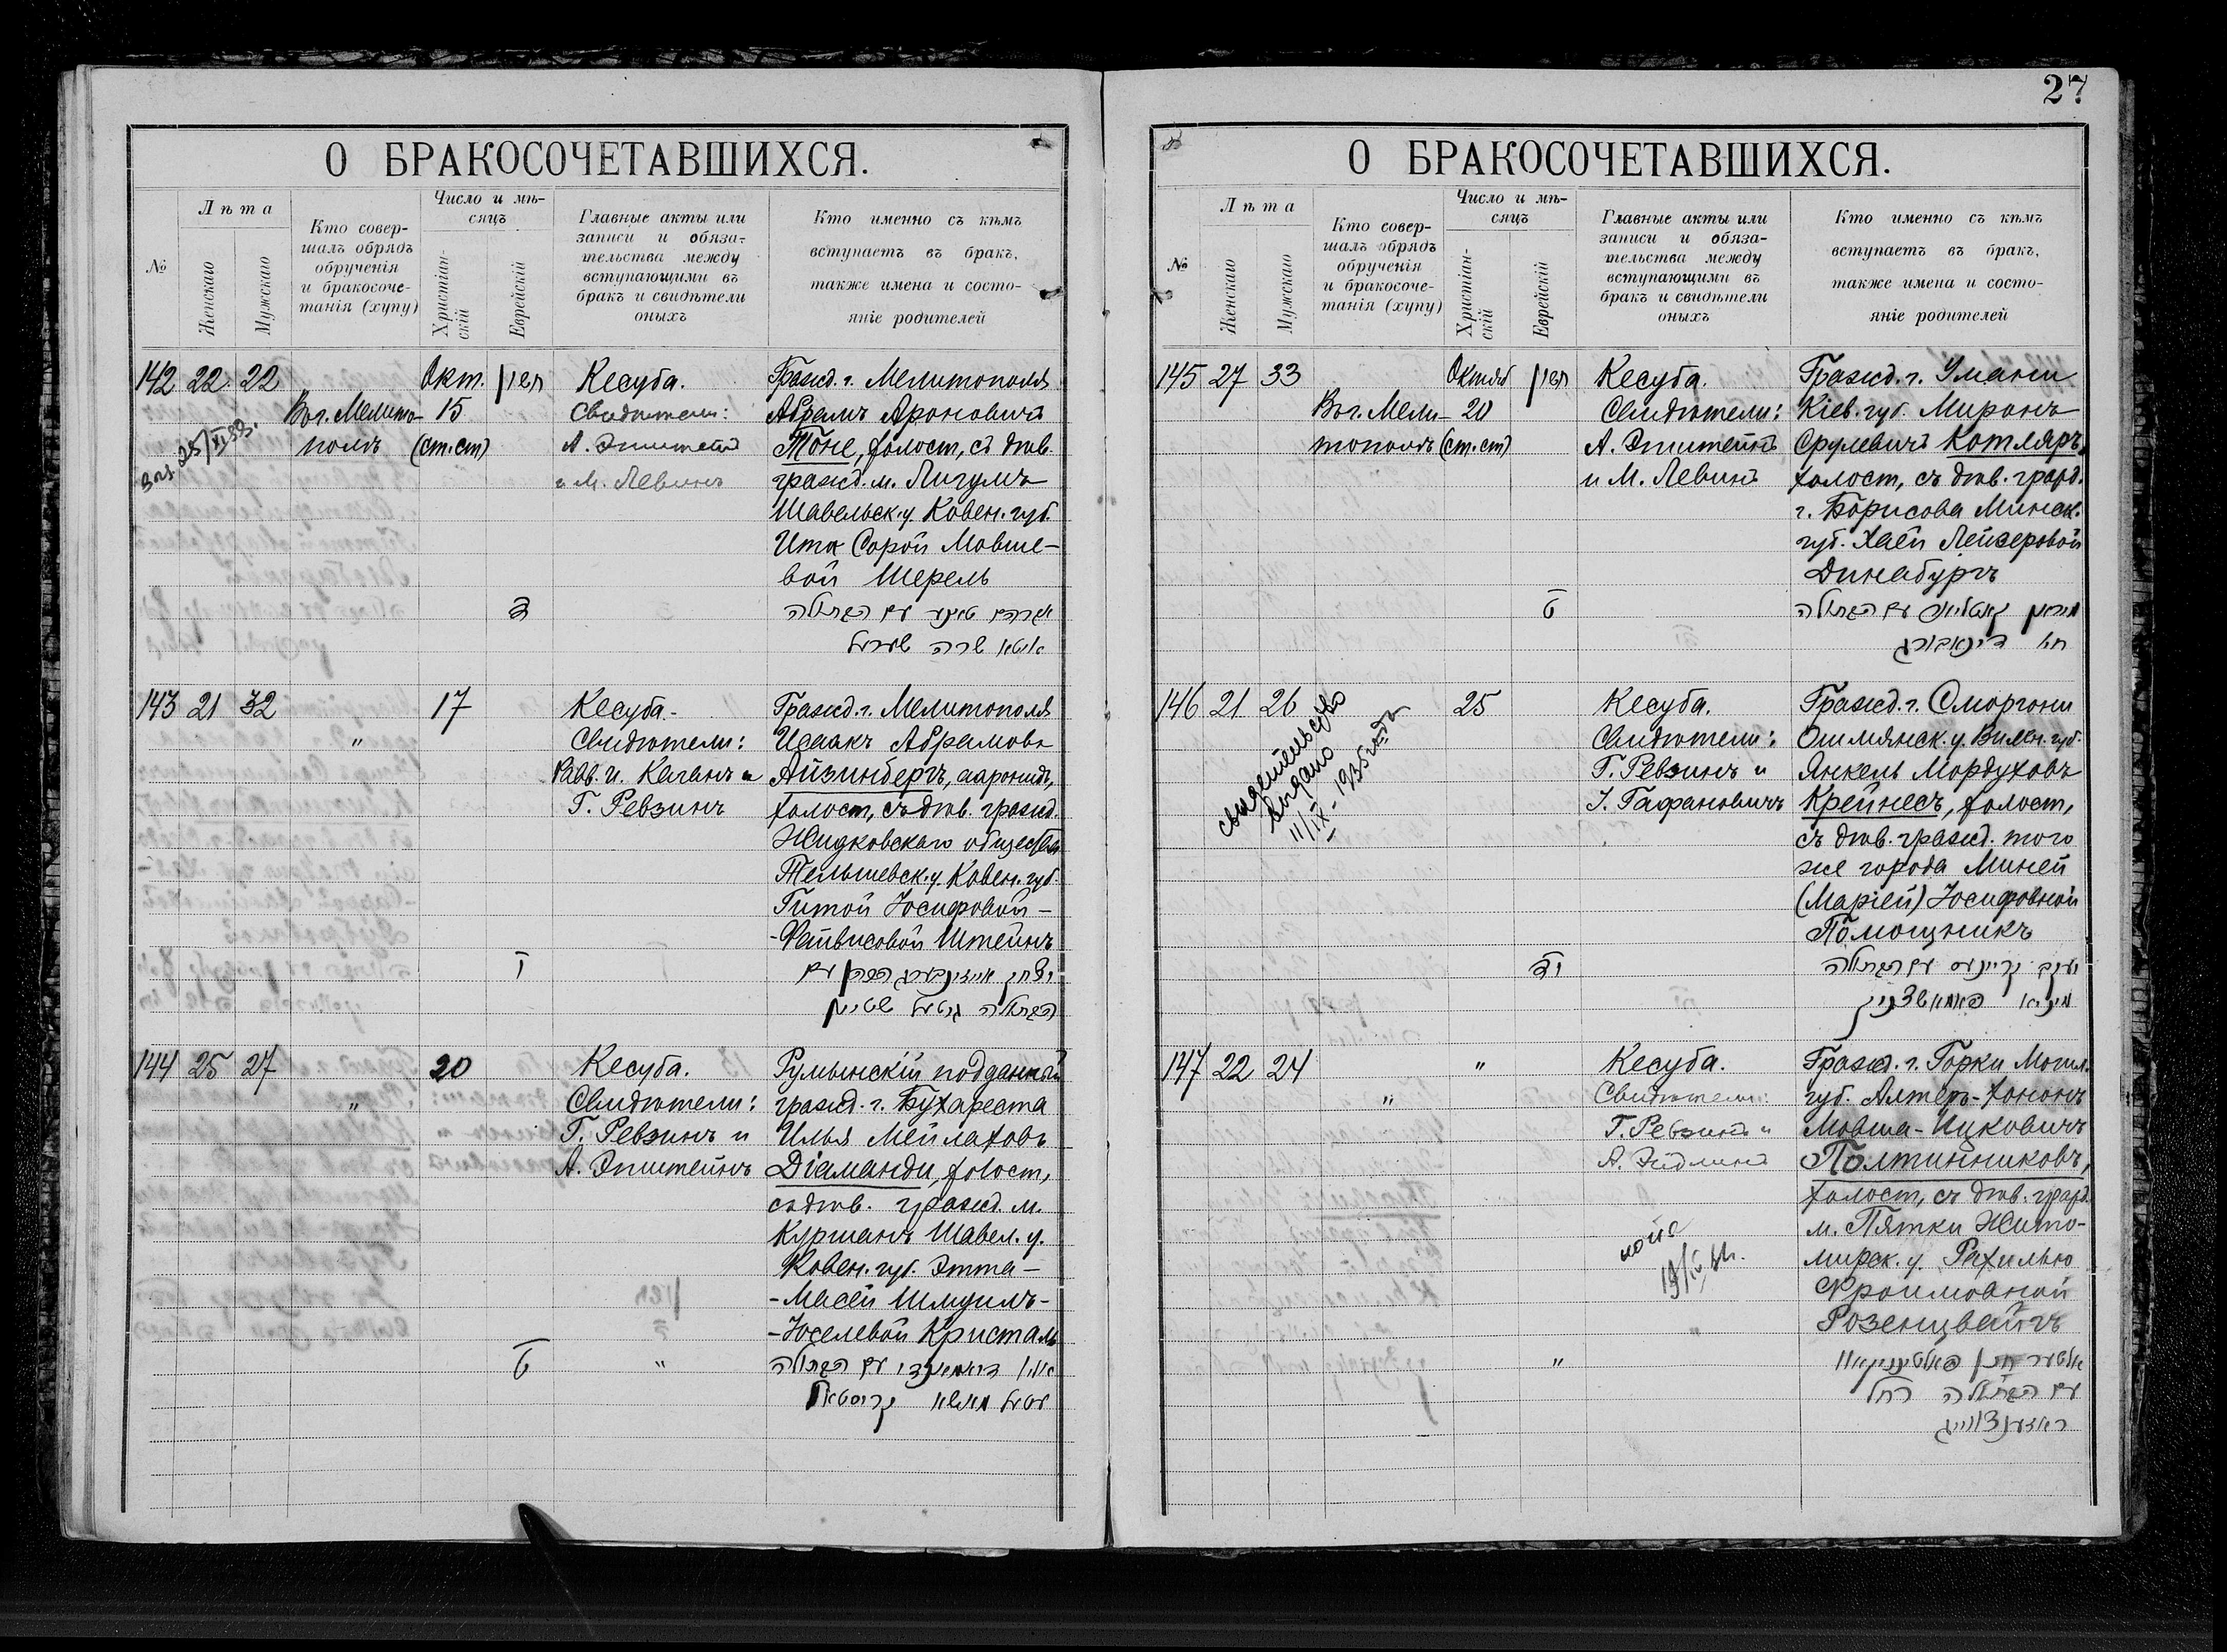 О БРАКОСОЧЕТАВШИХСЯ.
№
Лѣта
Женскаго
Мужскаго
Кто совер-
шалъ обрядъ
обрученія
и бракосоче-
танія (хупу)
Число и мѣ-
сяцъ
Христіан-
скій
Еврейскій
Главные акты или
записи и обяза-
тельства между
вступающими въ
бракъ и свидѣтели
оныхъ
Кто именно съ кѣмъ
вступаетъ въ бракъ,
также имена и состо-
яніе родителей
142 22 22
Въ г. Мелито-
полѣ
Окт.
15
(ст. ст)
Кесуба.
Свидѣтели:
А. Эпштейнъ
и М. Левинъ
Гражд. г. Мелитополя
Абрамъ Ароновичъ
Тоне, холост, съ дѣв.
гражд. м. Лигумъ
Шавельск. у. Ковен. губ.
Ита Сорой Мовше-
вой Шерель
אברהם טאנע עם הבתולה
איטא שרה שערעל
143 21 32
"
17
Кесуба.
Свидѣтели:
Равв. И. Каганъ и
Г. Ревзинъ
Гражд. г. Мелитополя
Исаакъ Абрамовъ
Айзинбергъ, ааронидъ,
холост, съ дѣв. гражд.
Жидковскаго общества
Тельшевск. у. Ковен. губ.
Гитой Іосифовой-
-Файвисовой Штейнъ
יצחק אייזינבערג הכהן עם
הבתולה גיטעל שטיין
144 25 27
"
20
Кесуба.
Свидѣтели:
Г. Ревзинъ и
А. Эпштейнъ
Румынскій подданный
гражд. г. Бухареста
Илья Мейлаховъ
Діаманди, холост,
съ дѣв. гражд. м.
Куршанъ Шавел. у.
Ковен. губ. Этта-
-Масей Шмуилъ-
-Іоселевой Кристаль
עם הבתולה
27
О БРАКОСОЧЕТАВШИХСЯ.
№
Лѣта
Женскаго
Мужскаго
Кто совер-
шалъ обрядъ
обрученія
и бракосоче-
танія (хупу)
Число и мѣ-
сяцъ
Христіан-
скій
Еврейскій
Главные акты или
записи и обяза-
тельства между
вступающими въ
бракъ и свидѣтели
оныхъ
Кто именно съ кѣмъ
вступаетъ въ бракъ,
также имена и состо-
яніе родителей
145 27 33
Въ г. Мели-
тополѣ
Октяб
20
(ст. ст)
Кесуба.
Свидѣтели:
А. Эпштейнъ
и М. Левинъ
Гражд. г. Умани
Кіев. губ. Миронъ
Срулевичъ Котляръ,
холост, съ дѣв. гражд.
г. Борисова Минск.
губ. Хаей Лейзеровой
Динабургъ
עם הבתולה
חיה דינאבורג
146 21 26
свидетельство
выдано
11/IX-1935 года
25
Кесуба.
Свидѣтели:
Г. Ревзинъ и
І. Гафановичъ
Гражд. г. Сморгони
Ошмянск. у. Вилен. губ.
Янкель Мордуховъ
Крейнесъ, холост,
съ дѣв. гражд. того
же города Миней
(Маріей) Іосифовной
Помощникъ
יעקב קריינעס עם הבתולה
מיניא פאמאשצניק
147 22 24
"
"
Кесуба.
Свидѣтели:
Г. Ревзинъ и
А. Эйдлинъ
Гражд. г. Горки Могил.
губ. Алтеръ-Хононъ
Мовша-Ицковичъ
Полтинниковъ,
холост, съ дѣв. гражд.
м. Пятки Жито-
мирск. у. Рахилью
Фроимовной
Розенцвейгъ
אלטער חנן פאלטיניקאוו
עם הבתולה רחל
ראזענצווייג